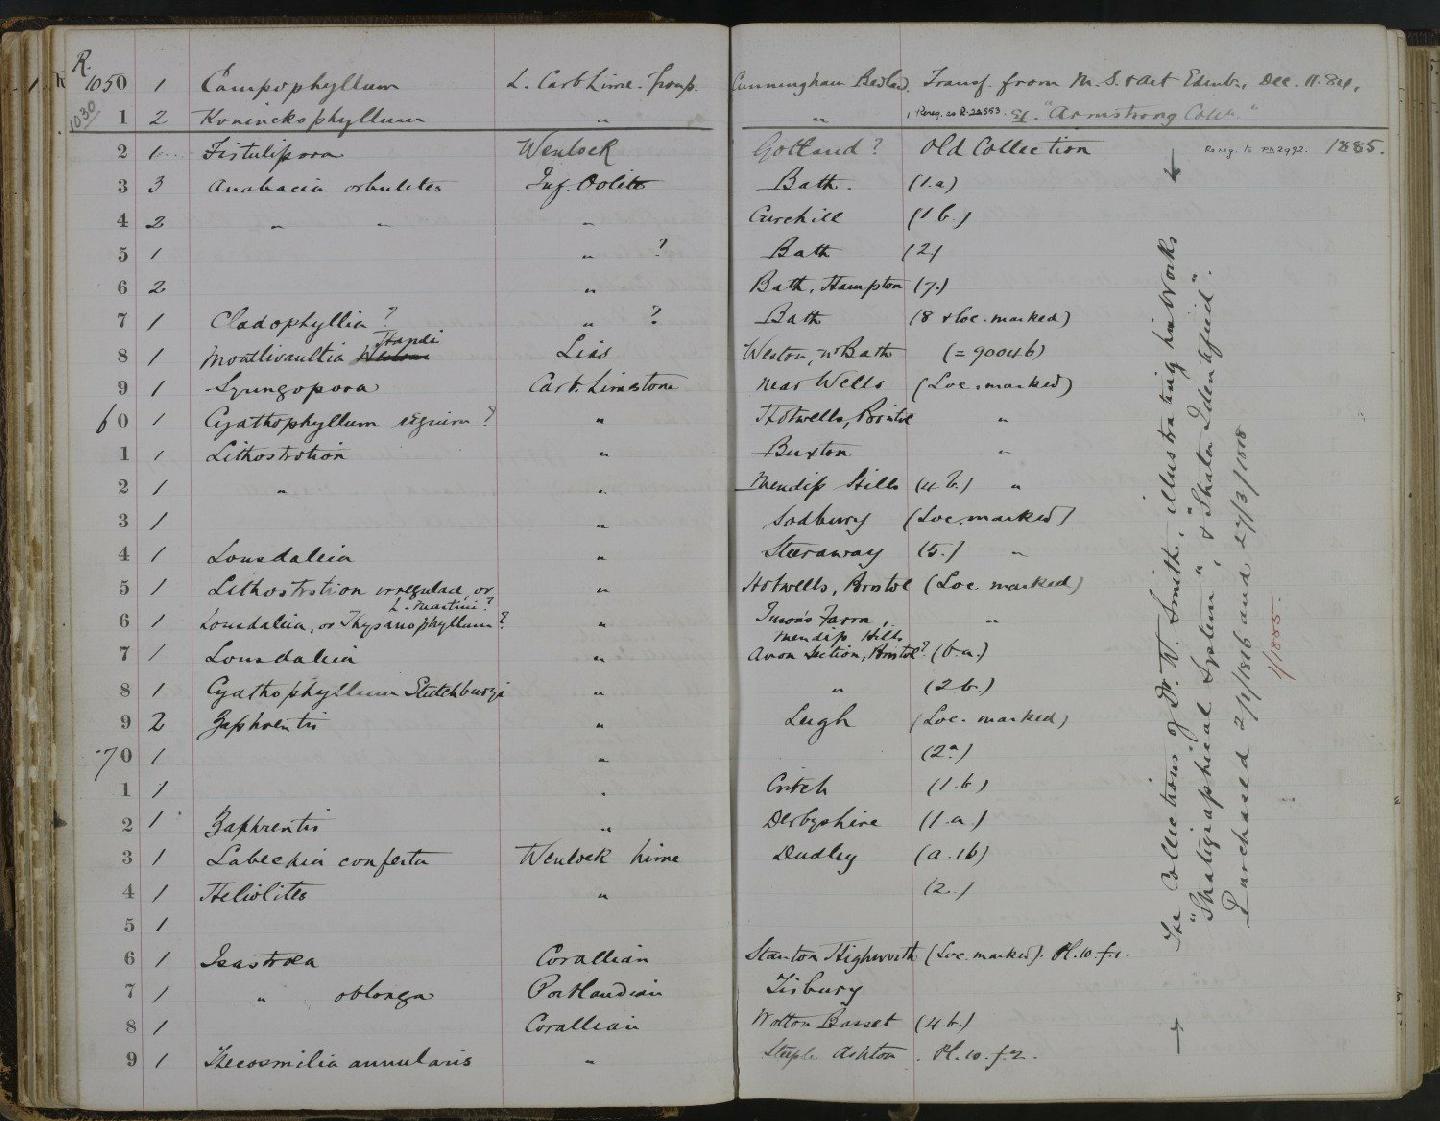 R.
1050 1 Campophyllum L. Carb Lime. Group. Cunningham Bedland. Transf. from M. S. & Art Edinb., Dec. 11. 84.
1030
1 2 Koninckophyllum " " Rereg. as R. 28553. Ex. "Armstrong Colln."
2 1 Fistulipora Wenlock Gotland? Old Collection Rereg. to PD 2492. 1885.
3 3 Anabacia orbulites Inf. Oolite Bath. (1.a)
4 2 " " " Curchill (1 b.)
5 1 " ? Bath (2)
6 2 " Bath, Hampton (7.)
7 1 Cladophyllia ? " ? Bath (8 & loc. marked)
8 1 Montlivaultia Lias Weston, nr Bath (= 9004b)
9 1 Syringopora Carb. Limestone near Wells (Loc. marked)
60 1 Cyathophyllum regium ? " Hotwells, Bristol "
1 1 Lithostrotion " Buxton "
2 1 " " Mendip Hills (4 b.) "
3 1 " Sodbury (Loc. marked)
4 1 Lonsdaleia " Steeraway (5.) "
5 1 Lithostrotion irregulare, or " Hotwells, Bristol (Loc. marked)
L. Martini ?
6 1 Lonsdaleia, or Thysanophyllum ? " Farm, "
Mendip Hills
7 1 Lonsdaleia " Avon Section, Bristol ? (6.a.)
8 1 Cyathophyllum Stutchburyi " " (2 b.)
9 2 Zaphrentis " Leigh (Loc. marked)
70 1 " (2a)
1 1 " Critch (1.b)
2 1 Zaphrentis " Derbyshire (1.a)
3 1 Labechia conferta Wenlock Lime Dudley (a. 1b)
4 1 Heliolites " (2.)
5 1
6 1 Isastraea Corallian Stanton Highworth (Loc. marked). Pl. 10. f. 1.
7 1 " oblonga Portlandian Tisbury
8 1 Corallian Wotton Basset (4 b.)
9 1 Thecosmilia annularis " Steeple Ashton. Pl. 10. f. 2.
The Collections of Dr. W. Smith, illustrating his Works
"Stratigraphical System", & "Strata Identified".
Purchased 2/7/1816 and 27/3/1818
1/1885.